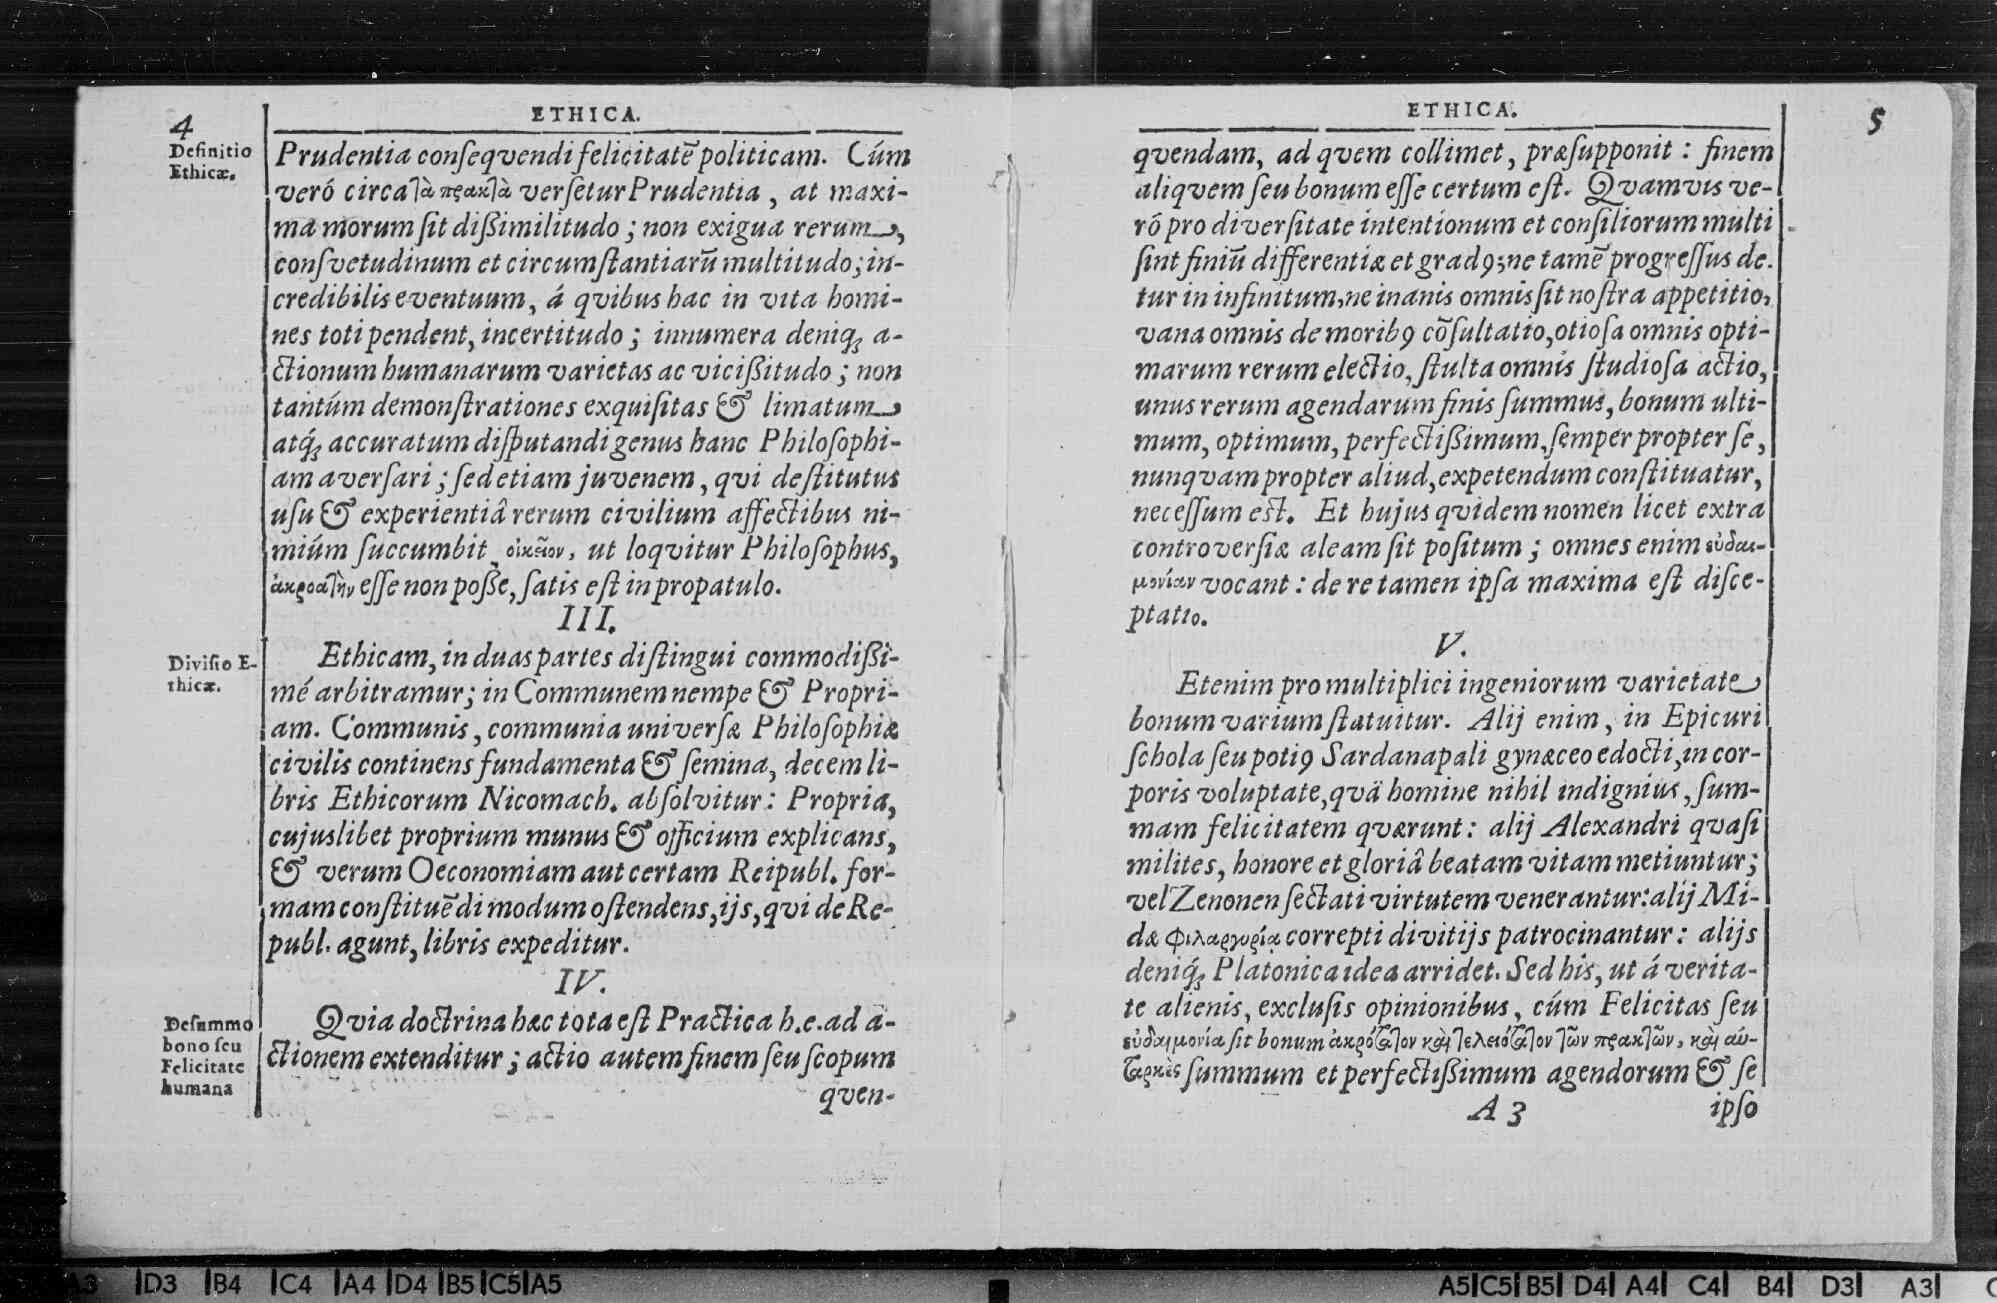 4
ETHICA.
Definitio
Ethicæ.
Prudentia conſeqvendi felicitatē politicam. Cúm
veró circa τὰ πρακτὰ verſetur Prudentia, at maxi-
ma morum ſit diſſimilitudo; non exigua rerum,
conſvetudinum et circumſtantiarū multitudo; in-
credibilis eventuum, á qvibus hac in vita homi-
nes toti pendent, incertitudo; innumera deniqꝫ a-
ctionum humanarum varietas ac viciſſitudo; non
tantúm demonſtrationes exquiſitas & limatum
atqꝫ́ accuratum diſputandi genus hanc Philoſophi-
am averſari; ſed etiam juvenem, qvi deſtitutus
uſu & experientiâ rerum civilium affectibus ni-
miúm ſuccumbit, οἰκεῖον, ut loqvitur Philoſophus,
ἀκροατὴν eſſe non poſſe, ſatis eſt in propatulo.
III.
Diviſio E-
thicæ.
Ethicam, in duas partes diſtingui commodiſſi-
mé arbitramur; in Communem nempe & Propri-
am. Communis, communia univerſæ Philoſophiæ
civilis continens fundamenta & ſemina, decem li-
bris Ethicorum Nicomach. abſolvitur: Propria,
cujuslibet proprium munus & officium explicans,
& verum Oeconomiam aut certam Reipubl. for-
mam conſtituēdi modum oſtendens, ijs, qvi de Re-
publ. agunt, libris expeditur.
IV.
De ſummo
bono ſeu
Felicitate
humana
Qvia doctrina hæc tota eſt Practica h. e. ad a-
ctionem extenditur; actio autem finem ſeu ſcopum
qven-
ETHICA.
5
qvendam, ad qvem collimet, præſupponit: finem
aliqvem ſeu bonum eſſe certum eſt. Qvamvis ve-
ró pro diverſitate intentionum et conſiliorum multi
ſint finiū differentiæ et gradꝰ; ne tamē progreſſus de-
tur in infinitum, ne inanis omnis ſit noſtra appetitio,
vana omnis de moribꝰ cōſultatio, otioſa omnis opti-
marum rerum electio, ſtulta omnis ſtudioſa actio,
unus rerum agendarum finis ſummus, bonum ulti-
mum, optimum, perfectiſſimum, ſemper propter ſe,
nunqvam propter aliud, expetendum conſtituatur,
neceſſum eſt. Et hujus qvidem nomen licet extra
controverſiæ aleam ſit poſitum; omnes enim εὐδαι-
μονίαν vocant: de re tamen ipſa maxima eſt diſce-
ptatio.
V.
Etenim pro multiplici ingeniorum varietate
bonum varium ſtatuitur. Alij enim, in Epicuri
ſchola ſeu potiꝰ Sardanapali gynæceo edocti, in cor-
poris voluptate, qvâ homine nihil indignius, ſum-
mam felicitatem qværunt: alij Alexandri qvaſi
milites, honore et gloriâ beatam vitam metiuntur;
vel Zenonen ſectati virtutem venerantur: alij Mi-
dæ φιλαργυρίᾳ correpti divitijs patrocinantur: alijs
deniqꝫ́ Platonica idea arridet. Sed his, ut á verita-
te alienis, excluſis opinionibus, cúm Felicitas ſeu
εὐδαιμονία ſit bonum ἀκρότατον καὶ τελειότατον τῶν πρακτῶν, καὶ αὔ-
ταρκες ſummum et perfectiſſimum agendorum & ſe
A 3
ipſo
A3 D3 B4 C4 A4 D4 B5 C5 A5
A5 C5 B5 D4 A4 C4 B4 D3 A3